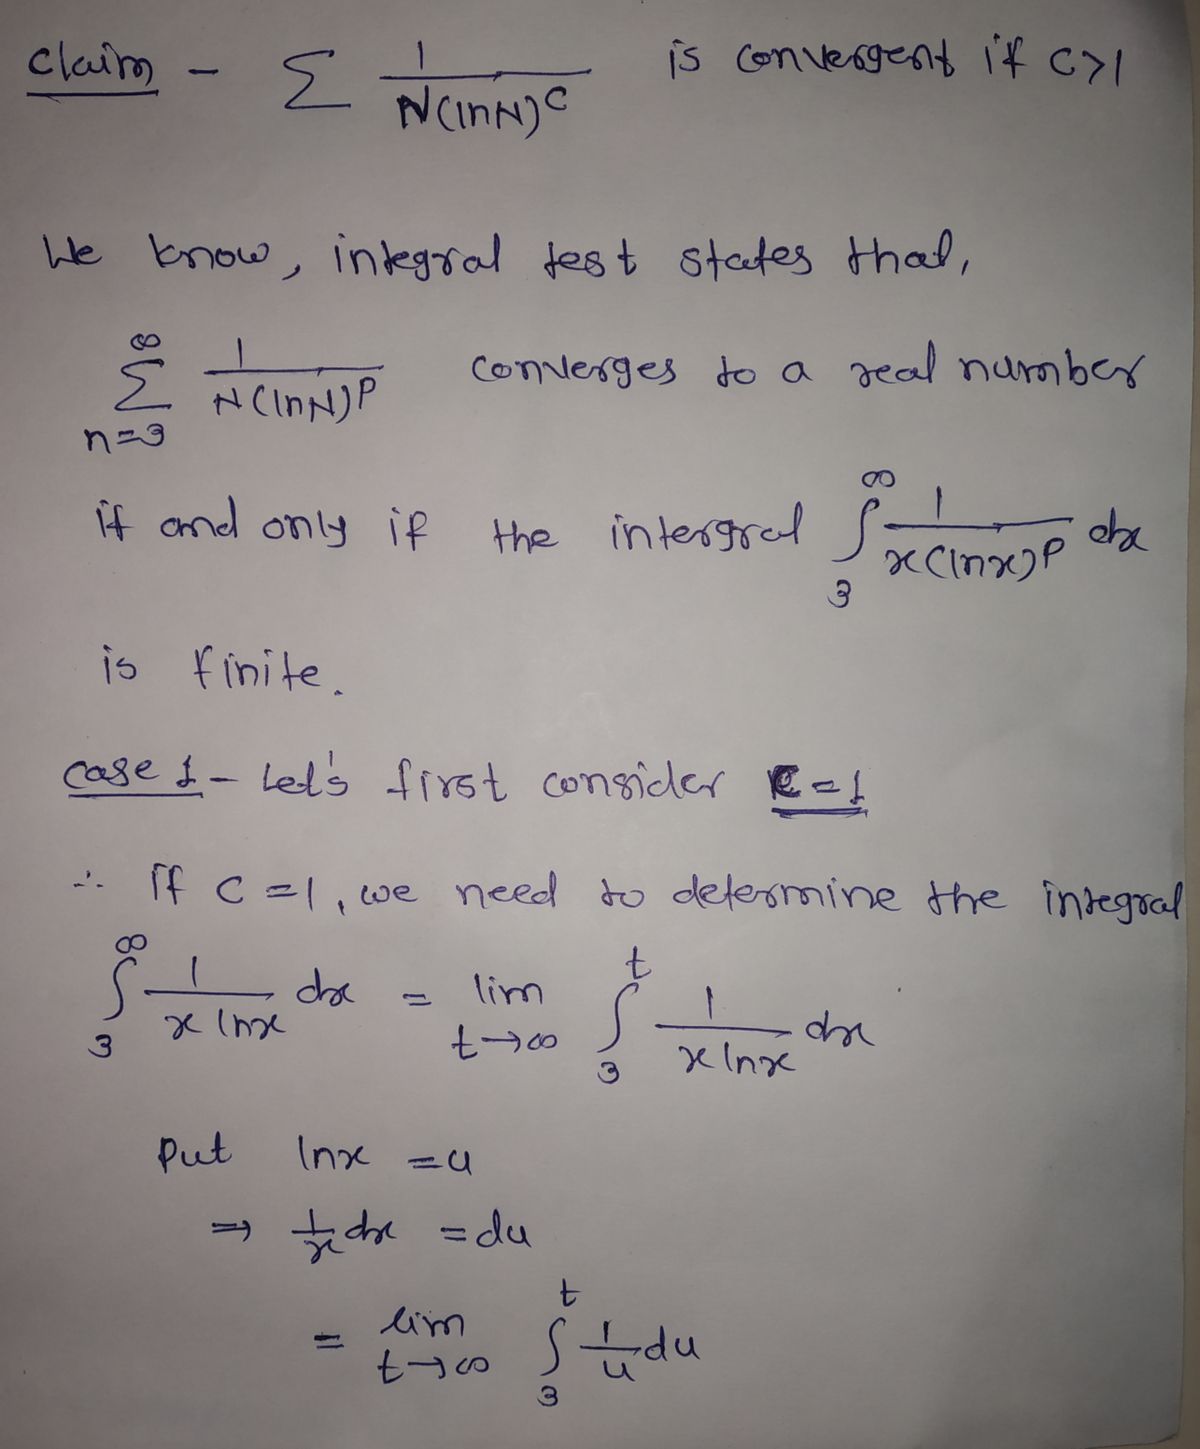 Claim - Σ 1/N(lnN)^C is convergent if C>1
We know, integral test states that,
∞ Σ n=3 1/N(lnN)^P converges to a real number
if and only if the intergral ∫_3^∞ 1/x(lnx)^P dx
is finite.
case 1 - Let's first consider C=1
∴ if C=1, we need to determine the integral
∫_3^∞ 1/x lnx dx = lim t→∞ ∫_3^t 1/x lnx dx
Put lnx = u
⇒ 1/x dx = du
= lim t→∞ ∫_3^t 1/u du